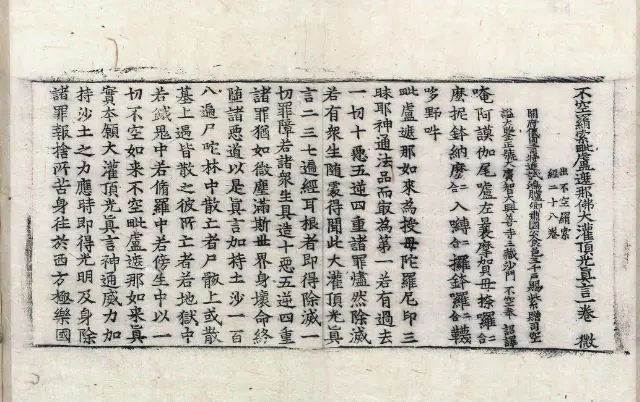 不空羂索毗盧遮那佛大灌頂光眞言一卷 㪅
出不空羂索
經二十八卷
開府儀同三司特進試鴻臚卿肅國公食邑三千戶賜紫贈司空
謚大鑒正號大廣智大興善寺三藏沙門 不空奉 詔譯
唵阿謨伽尾嚧左曩摩賀母捺囉二合
麽抳鉢納麽二合入嚩二合攞鉢囉二合韈
哆野吽
毗盧遮那如來為授母陀羅尼印三
昧耶神通法品而最為第一若有過去
一切十惡五逆四重諸罪燼然除滅
若有衆生隨處得聞此大灌頂光眞
言二三七遍經耳根者即得除滅一
切罪障若諸衆生具造十惡五逆四重
諸罪猶如微塵滿斯世界身壞命終
墮諸惡道以是眞言加持土沙一百
八遍尸陀林中散亡者尸骸上或散
墓上遇皆散之彼所亡者若地獄中
若餓鬼中若脩羅中若傍生中以一
切不空如來不空毗盧遮那如來眞
實本願大灌頂光眞言神通威力加
持沙土之力應時即得光明及身除
諸罪報捨所苦身往於西方極樂國